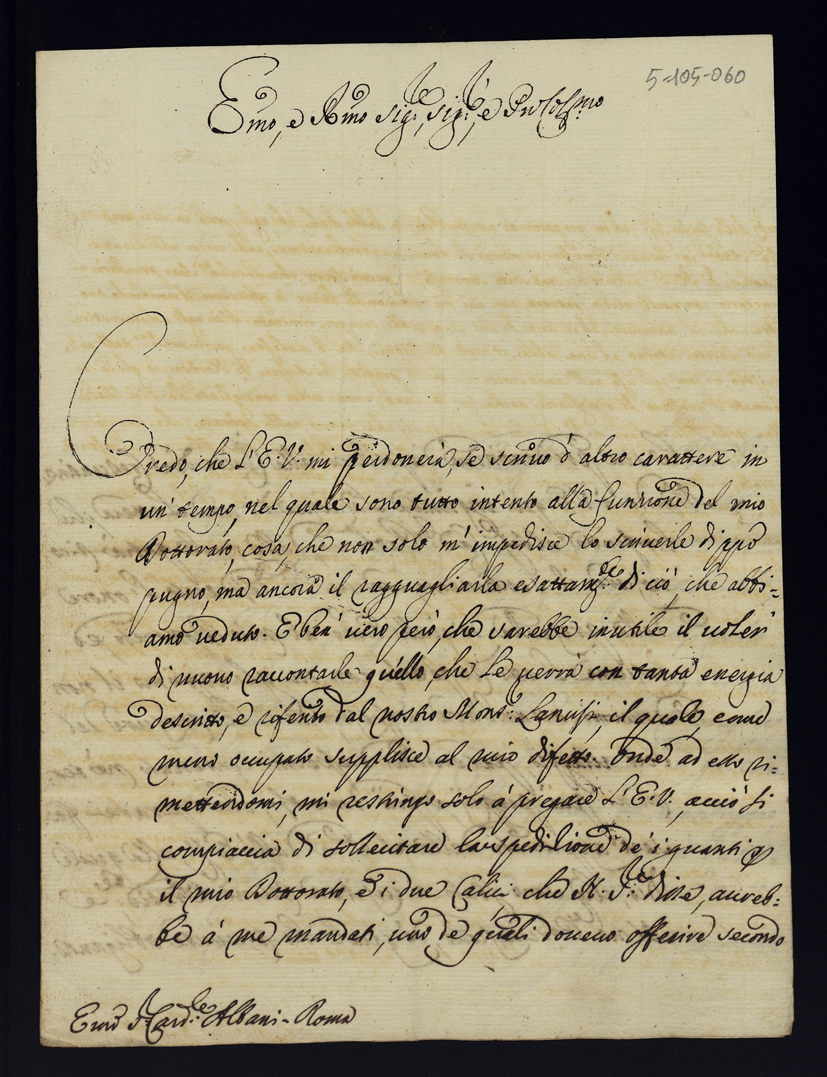 5-105-060
Emo, e Rmo Sig.re, Sig.re, e Prōn Colmo
Credo, che L'E. V. mi perdonerà, se scrivo d'altro carattere in
un' tempo, nel quale sono tutto intento alla funzione del mio
Dottorato, cosa, che non solo m'impedisce lo scriverle di ppō
pugno, ma ancora il ragguagliarla esattam.te di ciò, che abbi=
amo veduto. E ben' vero però, che sarebbe inutile il voler'
di nuovo raccontarle quello, che Le verrà con tanta energia
descritto, e riferito dal nostro Mons.r il quale, come
meno occupato supplisce al mio difetto. Onde ad esso ri=
mettendomi, mi restringo solo à pregare L'E. V., acciò si
compiaccia di sollecitare la spedizione de' i guanti p
il mio Dottorato, e i due Calici, che N. S.re disse, avreb=
be à me mandati, uno de quali doveuo offerire secondo
Emo S.r Card.le Albani - Roma